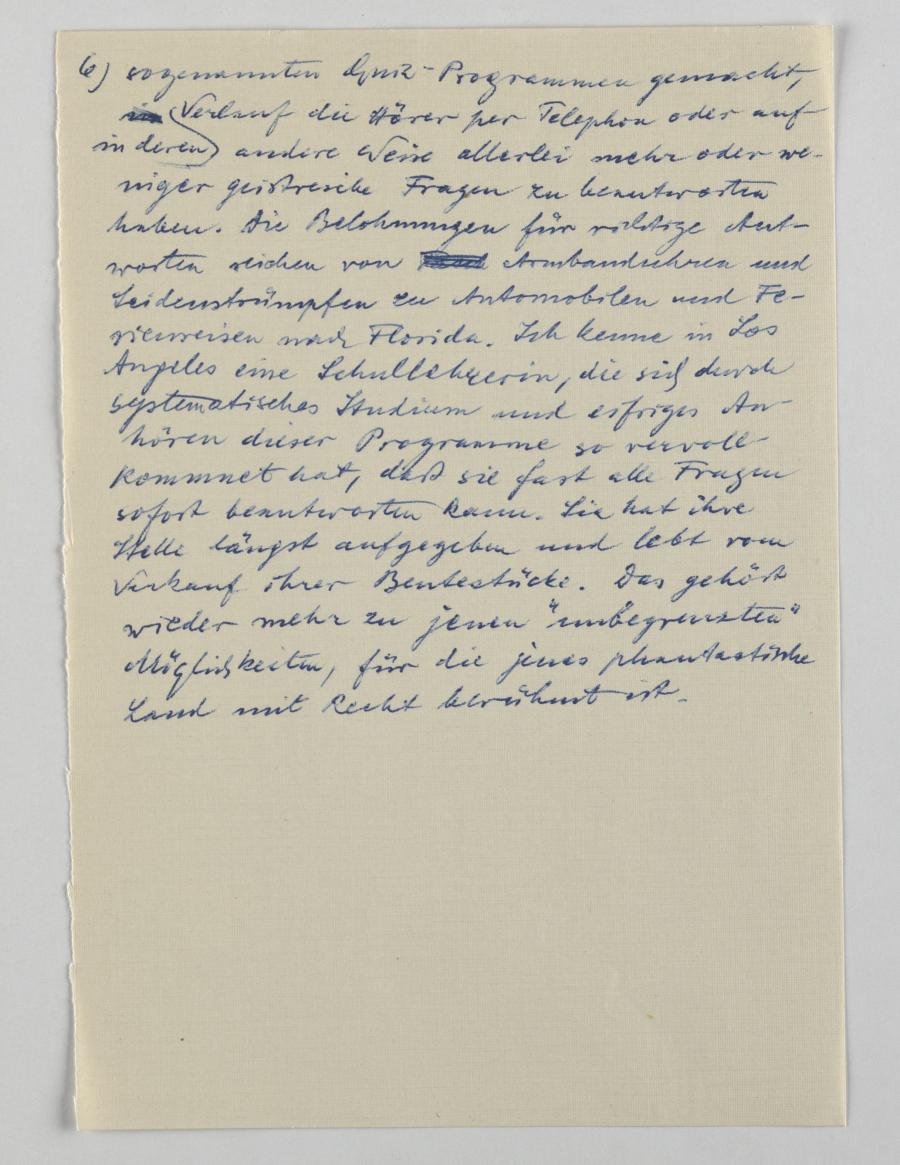 6) sogenannten Quiz-Programmen gemacht,
in deren Verlauf die Hörer per Telephon oder auf
andere Weise allerlei mehr oder we-
niger geistreiche Fragen zu beantworten
haben. Die Belohnungen für richtige Ant-
worten reichen von Armbanduhren und
Seidenstrümpfen zu Automobilen und Fe-
rienreisen nach Florida. Ich kenne in Los
Angeles eine Schullehrerin, die sich durch
systematisches Studium und eifriges An-
hören dieser Programme so vervoll-
kommnet hat, daß sie fast alle Fragen
sofort beantworten kann. Sie hat ihre
Stelle längst aufgegeben und lebt vom
Verkauf ihrer Beutestücke. Das gehört
wieder mehr zu jenen "unbegrenzten"
Möglichkeiten, für die jenes phantastische
Land mit Recht berühmt ist.